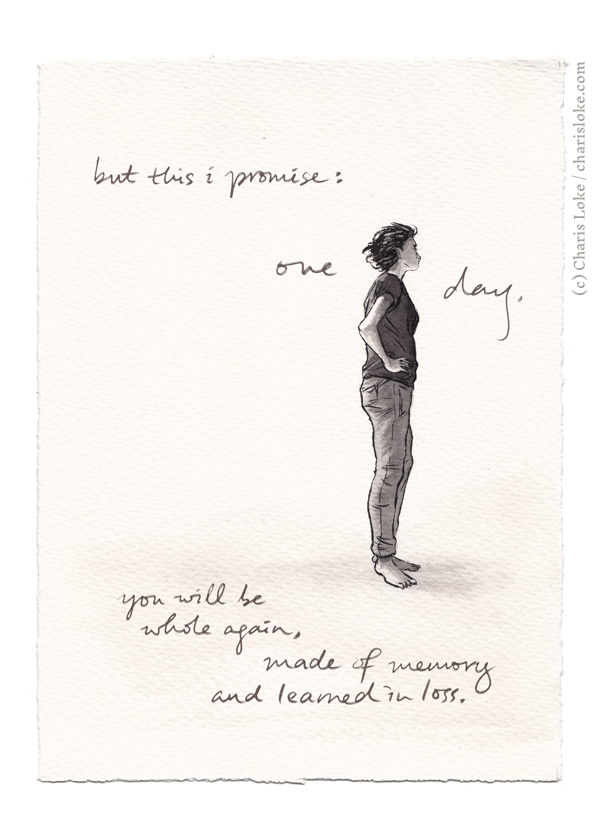 but this i promise:
one day.
you will be
whole again,
made of memory
and learned in loss.
(c) Charis Loke / charisloke.com